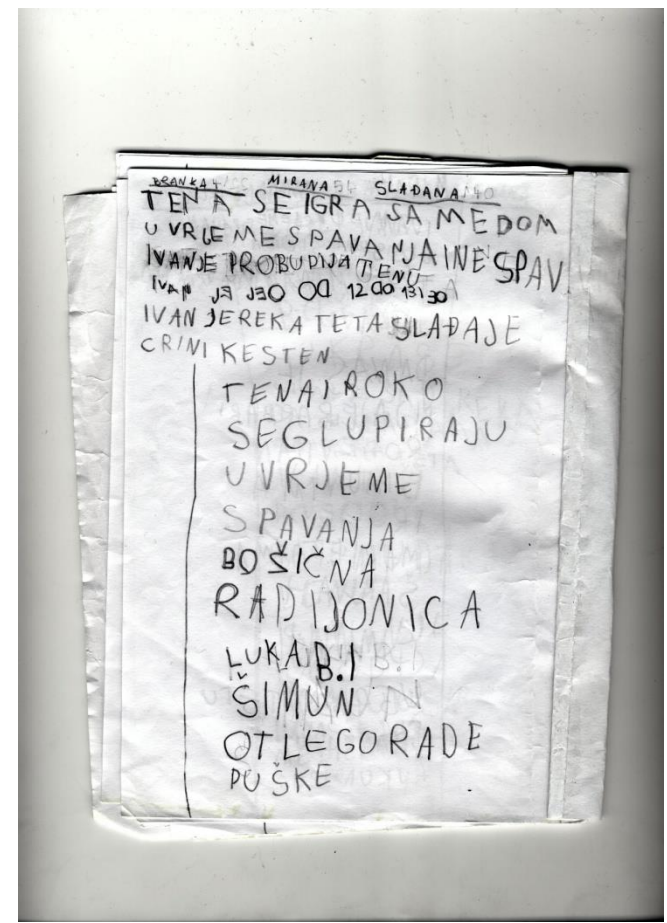 BRANKA 41 MIRANA 54 SLAĐANA 40
TENA SE IGRA SA MEDOM
U VRIEME SPAVANJA I NE SPAVA
IVAN JE PROBUDIJA TENU
IVAN JE JEO OD 12 DO 13 I 30
IVAN JE REKA TETA SLAĐA JE
CRINI KESTEN
TENA I ROKO
SE GLUPIRAJU
U VRJEME
SPAVANJA
BOŠIČNA
RADIJONICA
LUKA B. I
ŠIMUN
OT LEGO RADE
PUŠKE